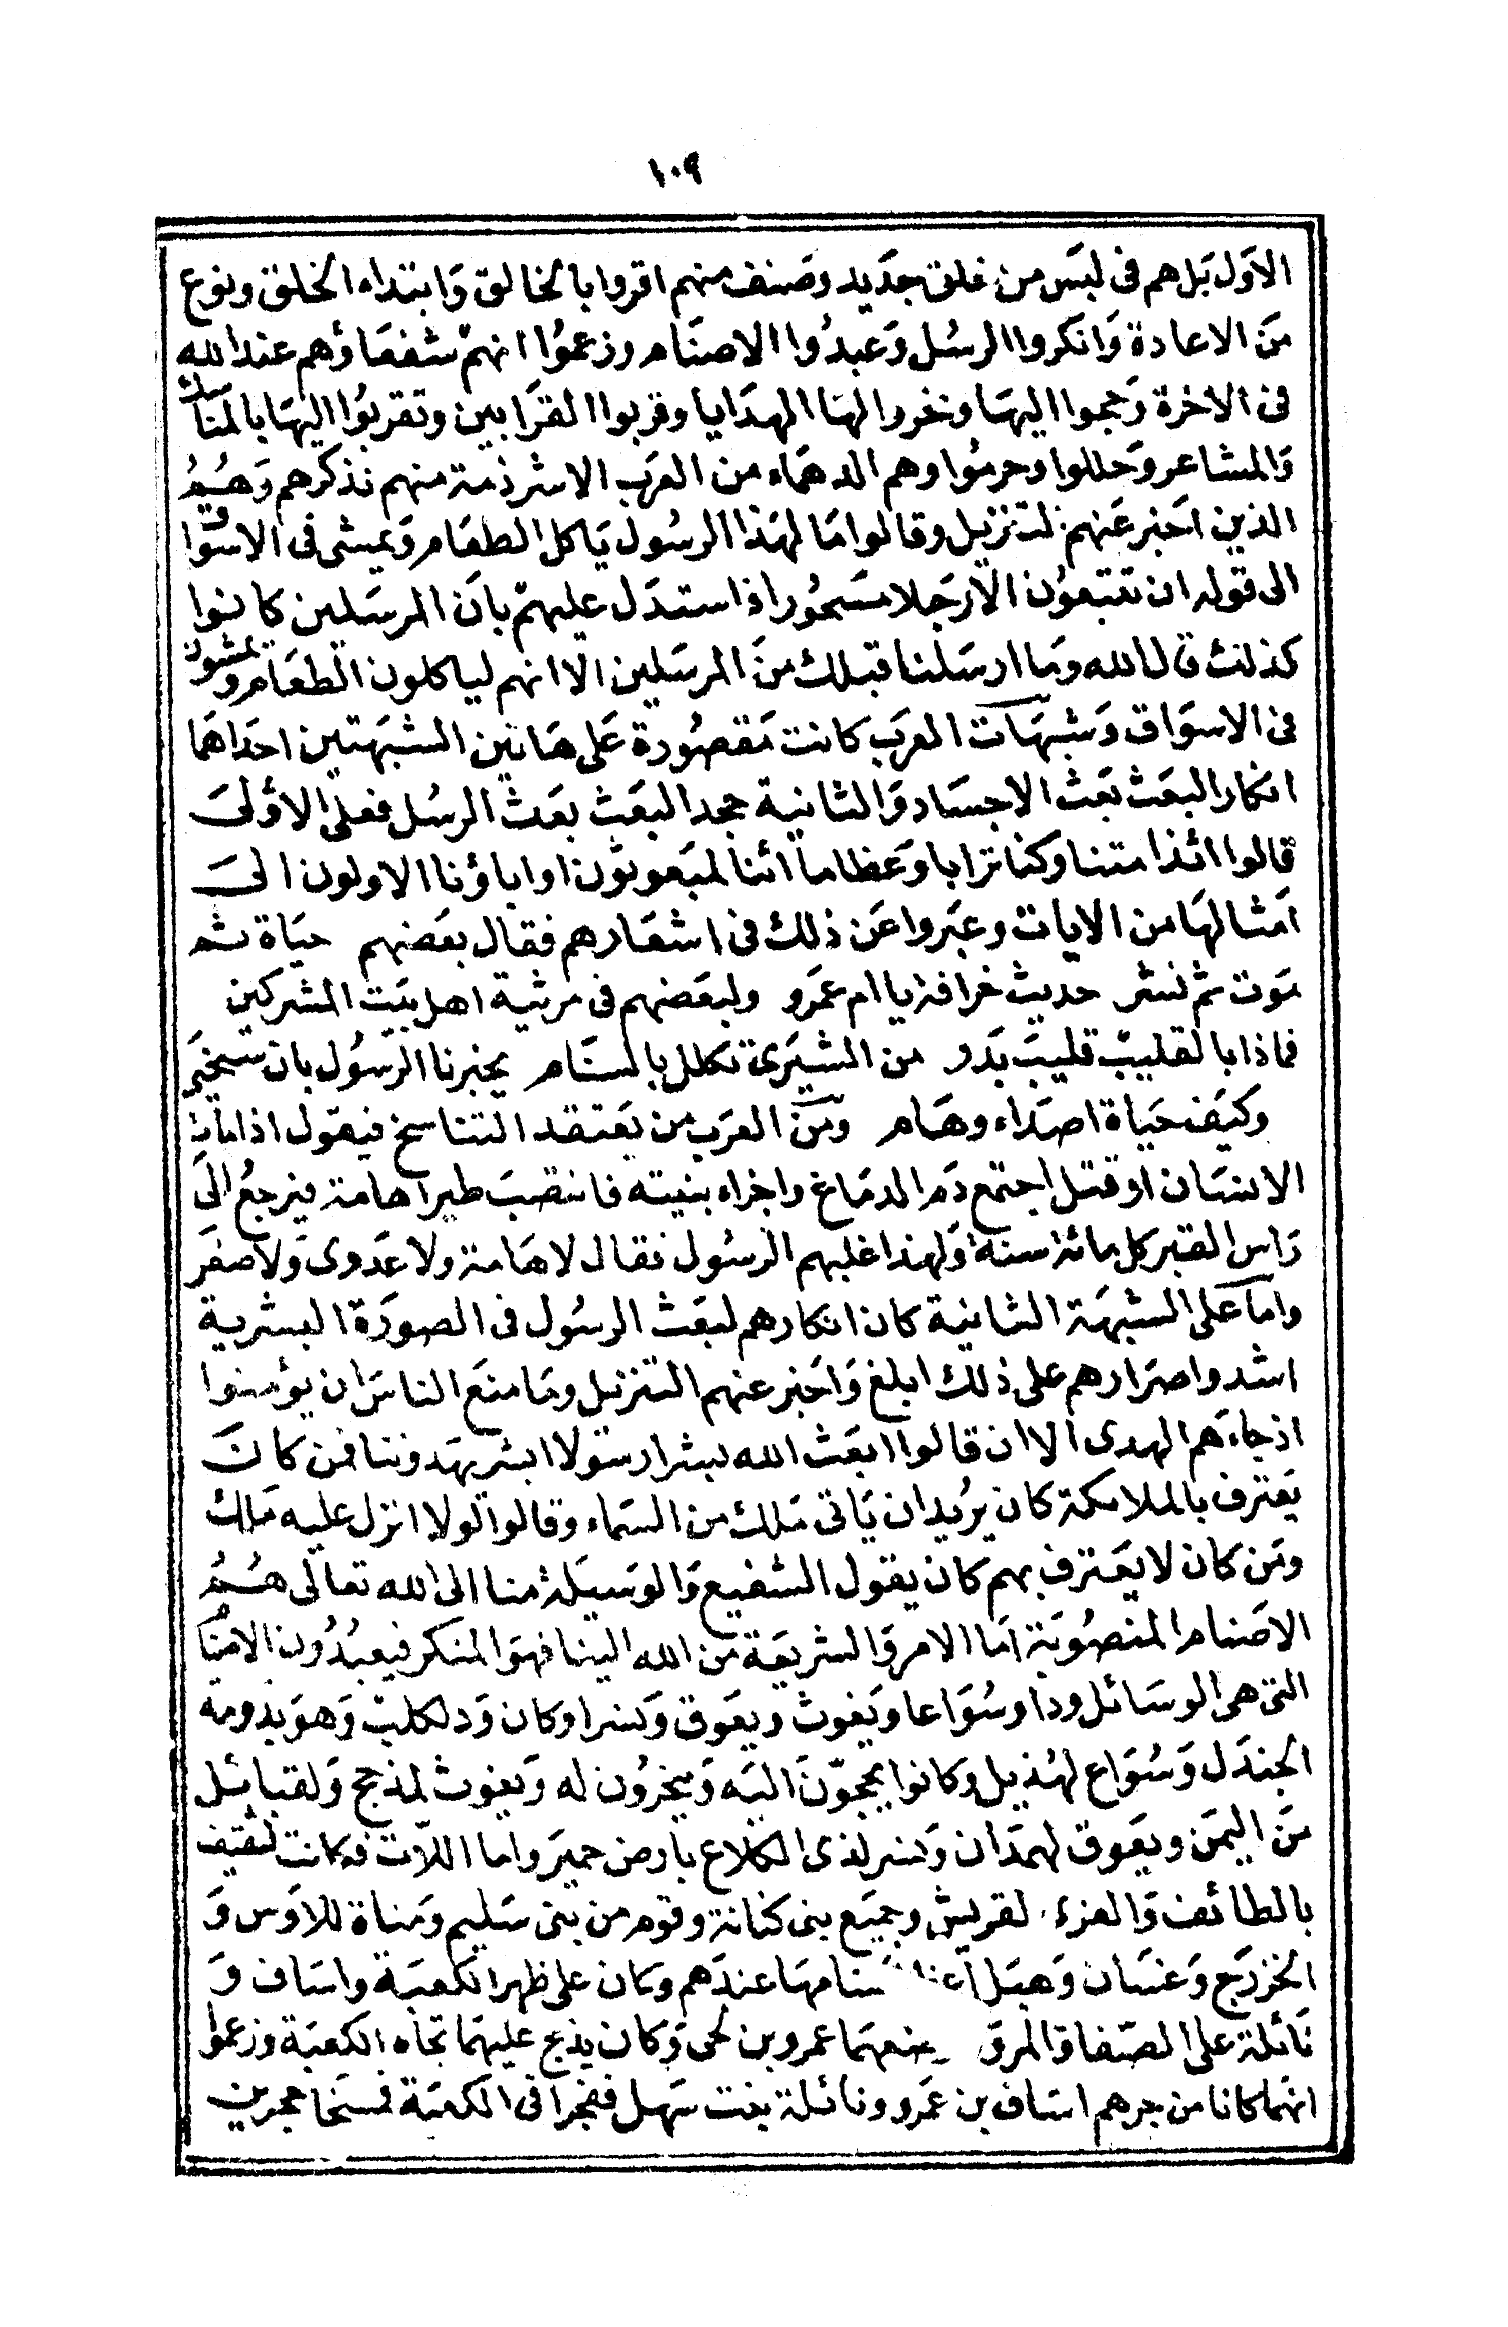 ١٠٩
الاول بل هم فى لبس من خلق جديد وصنف منهم اقروا بالخالق وابتداء الخلق ونوع
من الاعادة وانكروا الرسل وعبدوا الاصنام وزعموا انهم شفعاؤهم عند الله
فى الاخرة وحجوا اليها ونحروا لها الهدايا وقربوا القرابين وتقربوا اليها بالمناسك
والمشاعر وحللوا وحرموا وهم الدهماء من العرب الا شرذمة منهم نذكرهم وهم
الذين اخبر عنهم التنزيل وقالوا مال هذا الرسول ياكل الطعام ويمشى فى الاسواق
الى قوله ان تتبعون الا رجلا مسحورا فاستدل عليهم بان المرسلين كانوا
كذلك قال الله وما ارسلنا قبلك من المرسلين الا انهم لياكلون الطعام ويمشون
فى الاسواق وشبهات العرب كانت مقصورة على هاتين الشبهتين احداهما
انكار البعث بعث الاجساد والثانية جحد البعث بعث الرسل فعلى الاولى
قالوا ائذا متنا وكنا ترابا وعظاما ائنا لمبعوثون اواباؤنا الاولون الى
امثالها من الايات وعبروا عن ذلك فى اشعارهم فقال بعضهم حياة ثم
موت ثم نشر حديث خرافة يا ام عمرو ولبعضهم فى مرثية اهل بيت المشركين
فماذا بالقليب قليب بدر من الشيزى تكلل بالسنام يخبرنا الرسول بان سنحيى
وكيف حياة اصداء وهام ومن العرب من يعتقد التناسخ فيقول اذا مات
الانسان او قتل اجتمع دم الدماغ واجزاء بنيته فانتصب طيرا هامة فيرجع الى
راس القبر كل مائة سنة ولهذا غلبهم الرسول فقال لا هامة ولا عدوى ولا صفر
واما على الشبهة الثانية كان انكارهم لبعث الرسول فى الصورة البشرية
اشد واصرارهم على ذلك ابلغ واخبر عنهم التنزيل وما منع الناس ان يؤمنوا
اذ جاءهم الهدى الا ان قالوا ابعث الله بشرا رسولا ابشر يهدوننا فمن كان
يعترف بالملائكة كان يريد ان ياتى ملك من السماء وقالوا لولا انزل عليه ملك
ومن كان لا يعترف بهم كان يقول الشفيع والوسيلة منا الى الله تعالى هم
الاصنام المنصوبة اما الامر والشريعة من الله الينا فهو المنكر فيعبدون الاصنام
التى هى الوسائل ودا وسواعا ويغوث ويعوق ونسرا وكان ود لكلب وهو بدومة
الجندل وسواع لهذيل وكانوا يحجون اليه وينحرون له ويغوث لمذحج ولقبائل
من اليمن ويعوق لهمدان ونسر لذى الكلاع بارض حمير واما اللات فكانت لثقيف
بالطائف والعزى لقريش وجميع بنى كنانة وقوم من بنى سليم ومناة للاوس و
الخزرج وغسان وهبل اصنامها عندهم وكان على ظهر الكعبة واساف و
نائلة على الصفا والمروة وضعهما عمرو بن لحى وكان يذبح عليهما تجاه الكعبة وزعموا
انهما كانا من جرهم اساف بن عمرو ونائلة بنت سهل ففجرا فى الكعبة فمسخا حجرين